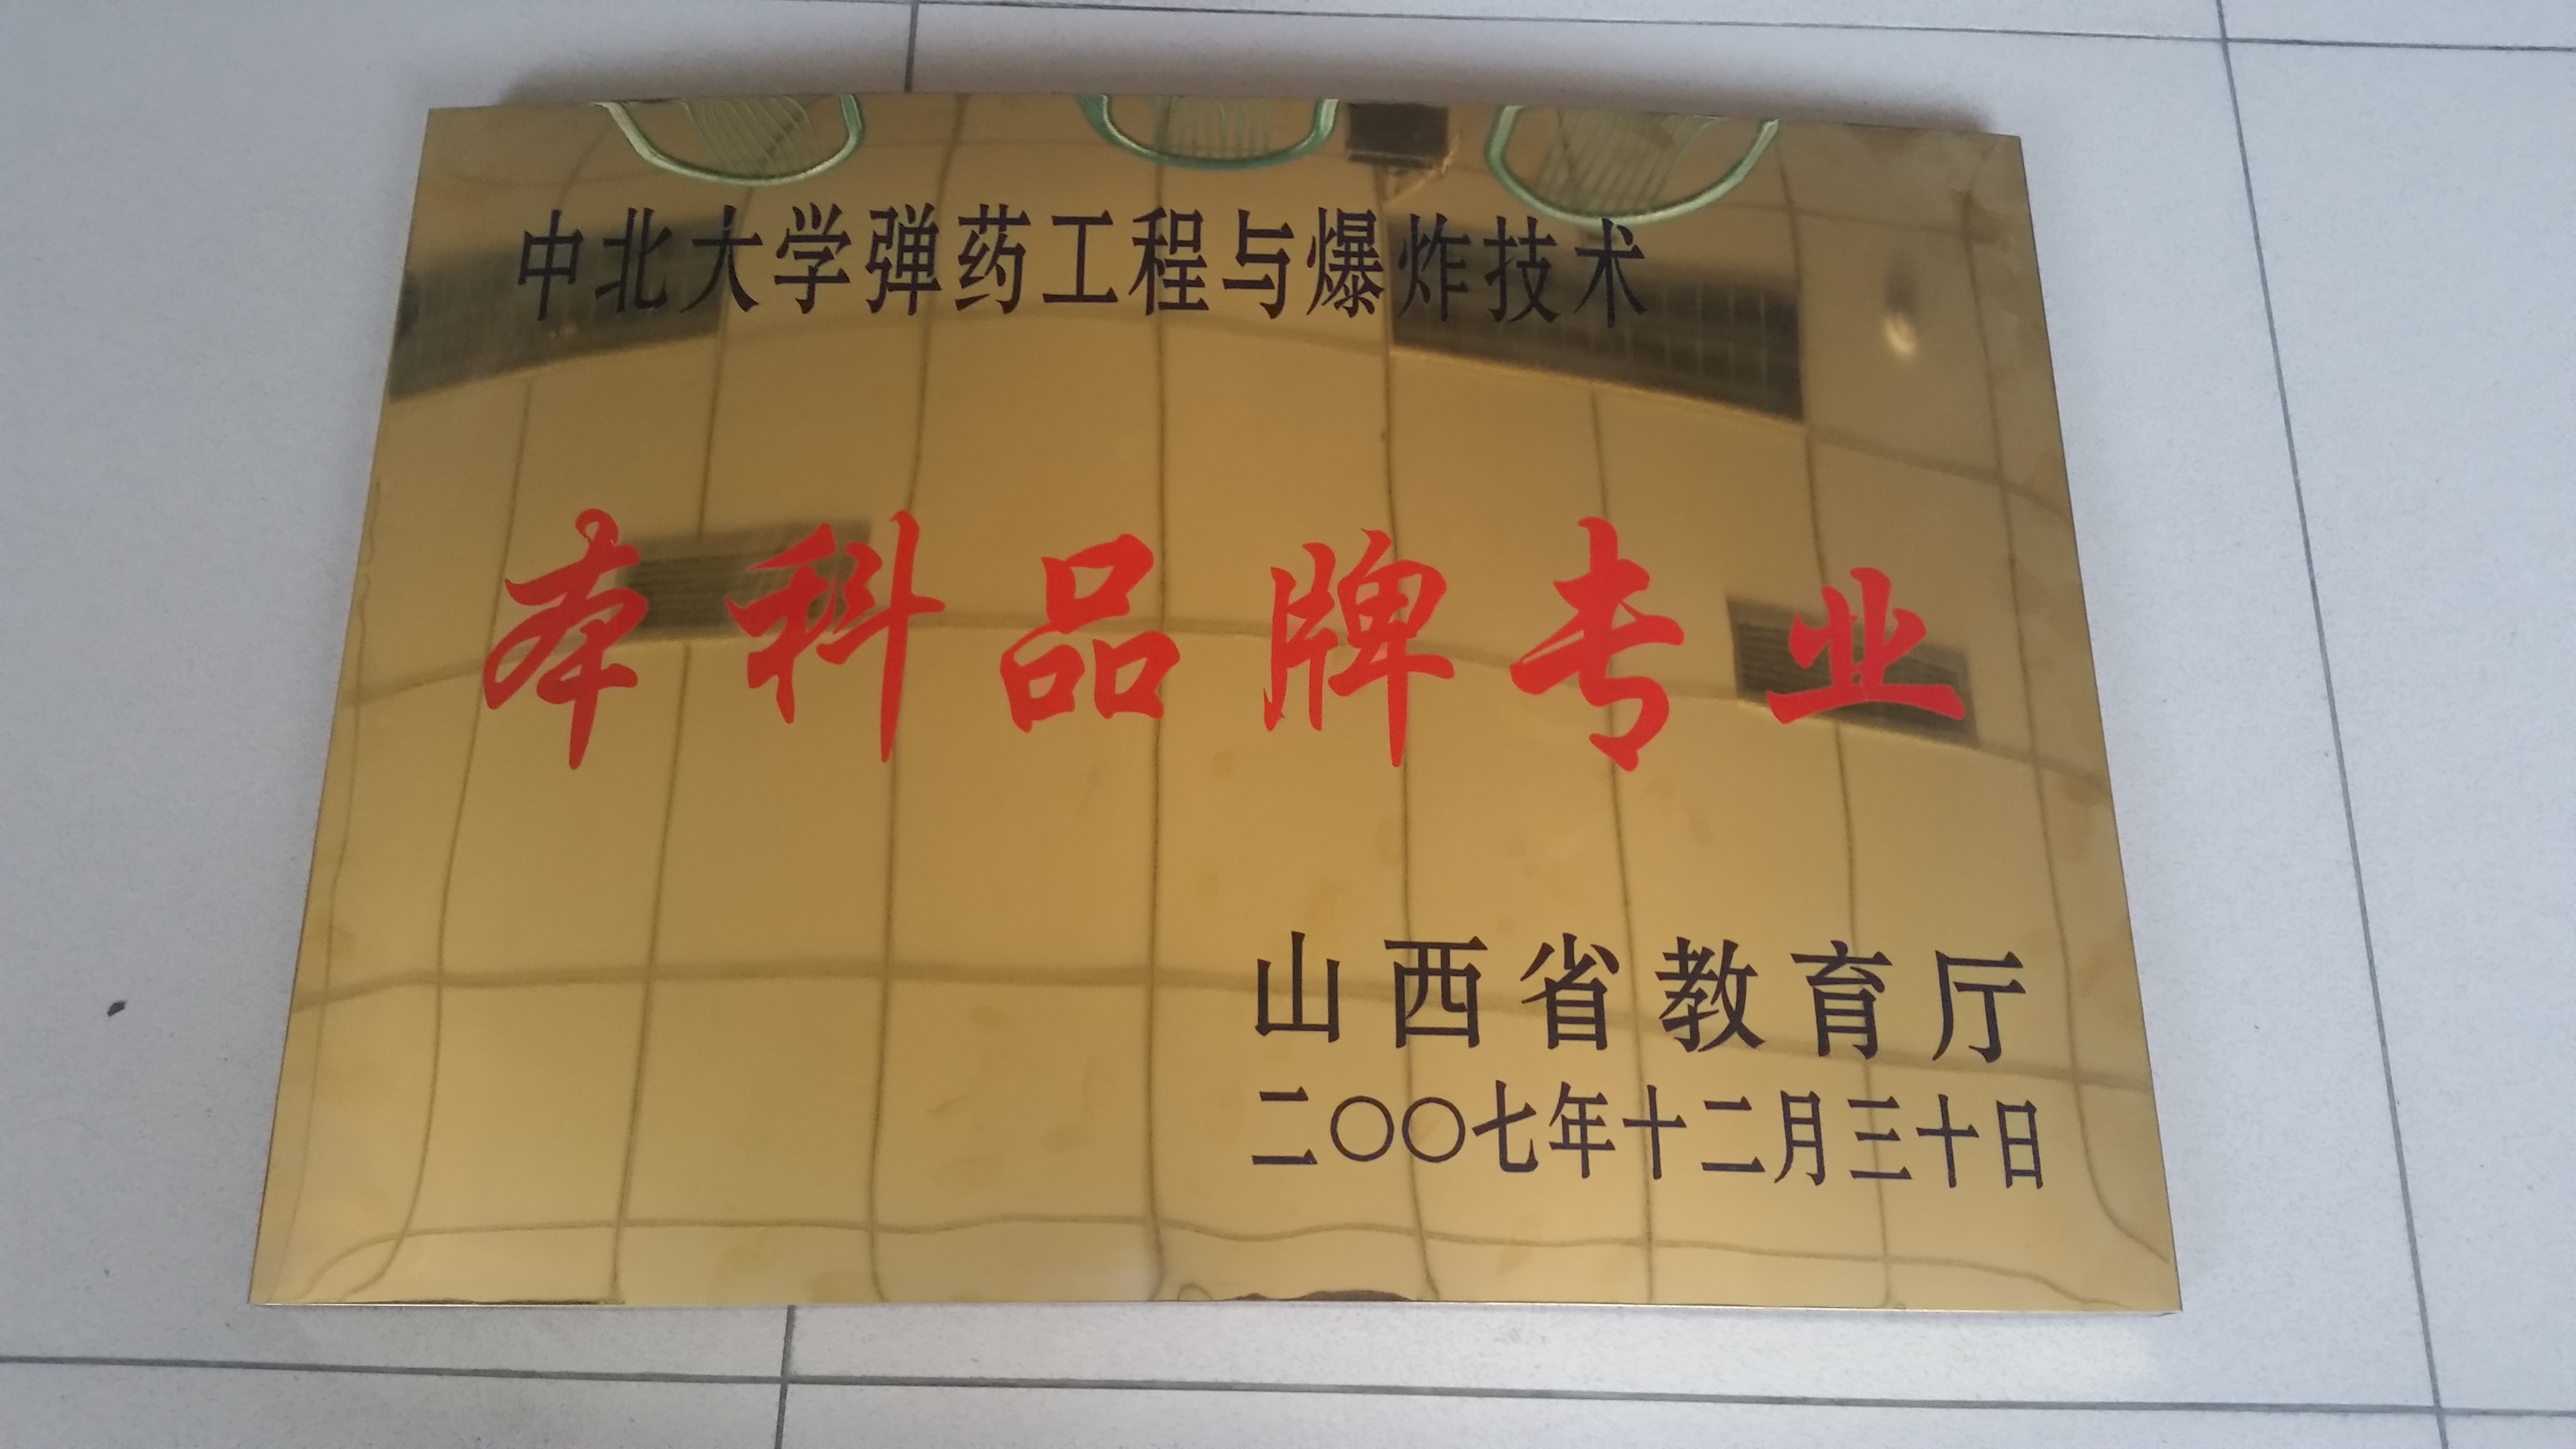 中北大学弹药工程与爆炸技术
本科品牌专业
山西省教育厅
二〇〇七年十二月三十日